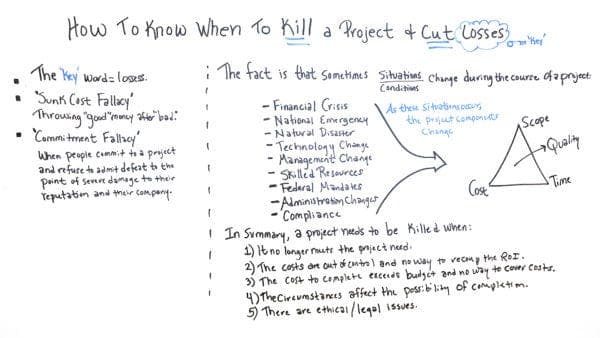 How To Know When To Kill a Project & Cut Losses
The 'Key' word = losses.
"Sunk Cost Fallacy"
Throwing "good" money after "bad."
"Commitment Fallacy"
When people commit to a project
and refuse to admit defeat to the
point of severe damage to their
reputation and their company.
The fact is that sometimes Situations Change during the course of a project
Conditions
- Financial Crisis
- National Emergency
- Natural Disaster
- Technology Change
- Management Change
- Skilled Resources
- Federal Mandates
- Administration Changes
- Compliance
As these situations occurs
the project components
Change
Scope
Quality
Cost
Time
In Summary, a project needs to be killed when:
1) It no longer meets the project need.
2) The costs are out of control and no way to recoup the ROI.
3) The cost to complete exceeds budget and no way to cover costs.
4) The circumstances affect the possibility of completion.
5) There are ethical/legal issues.